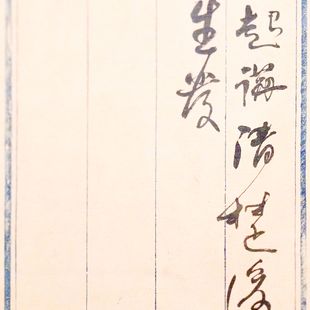 起講清楚後
生發